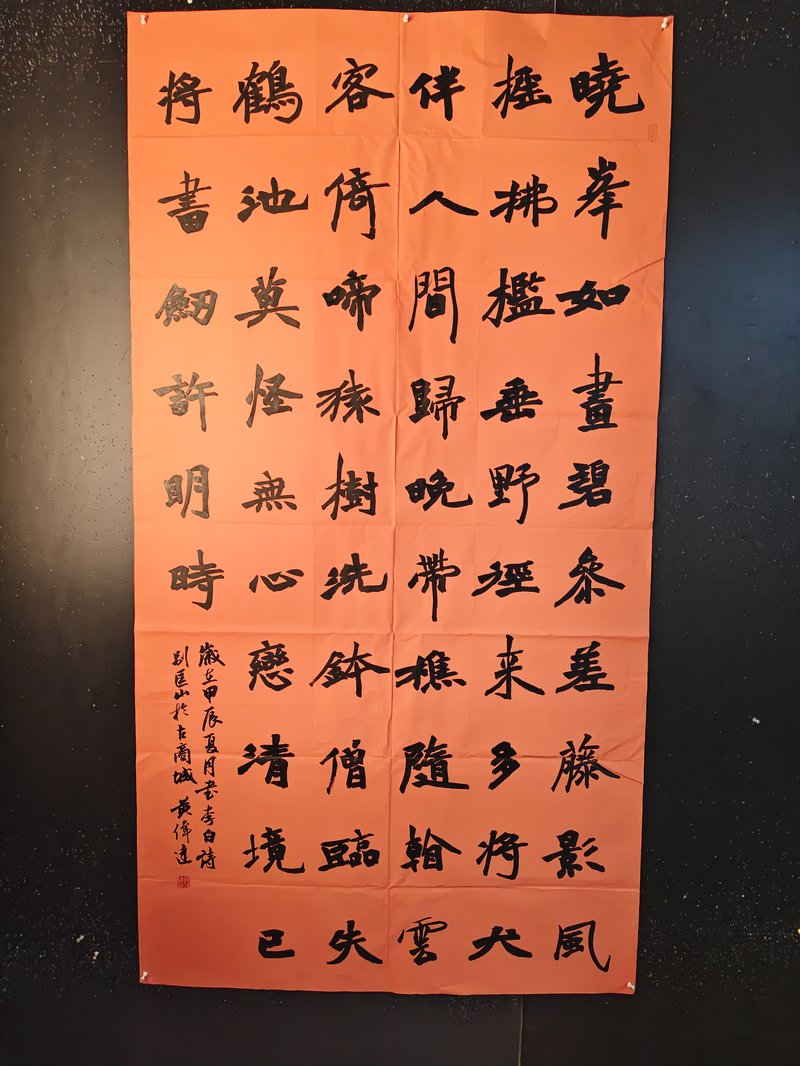 曉峯如畫碧參差藤影風
搖拂檻垂野徑来多將犬
伴人間歸晚帶樵隨看雲
客倚啼猿樹洗鉢僧臨失
鶴池莫怪無心戀清境已
將書劒許明時
歲在甲辰夏月書李白詩
別匡山於古商城 黃偉達